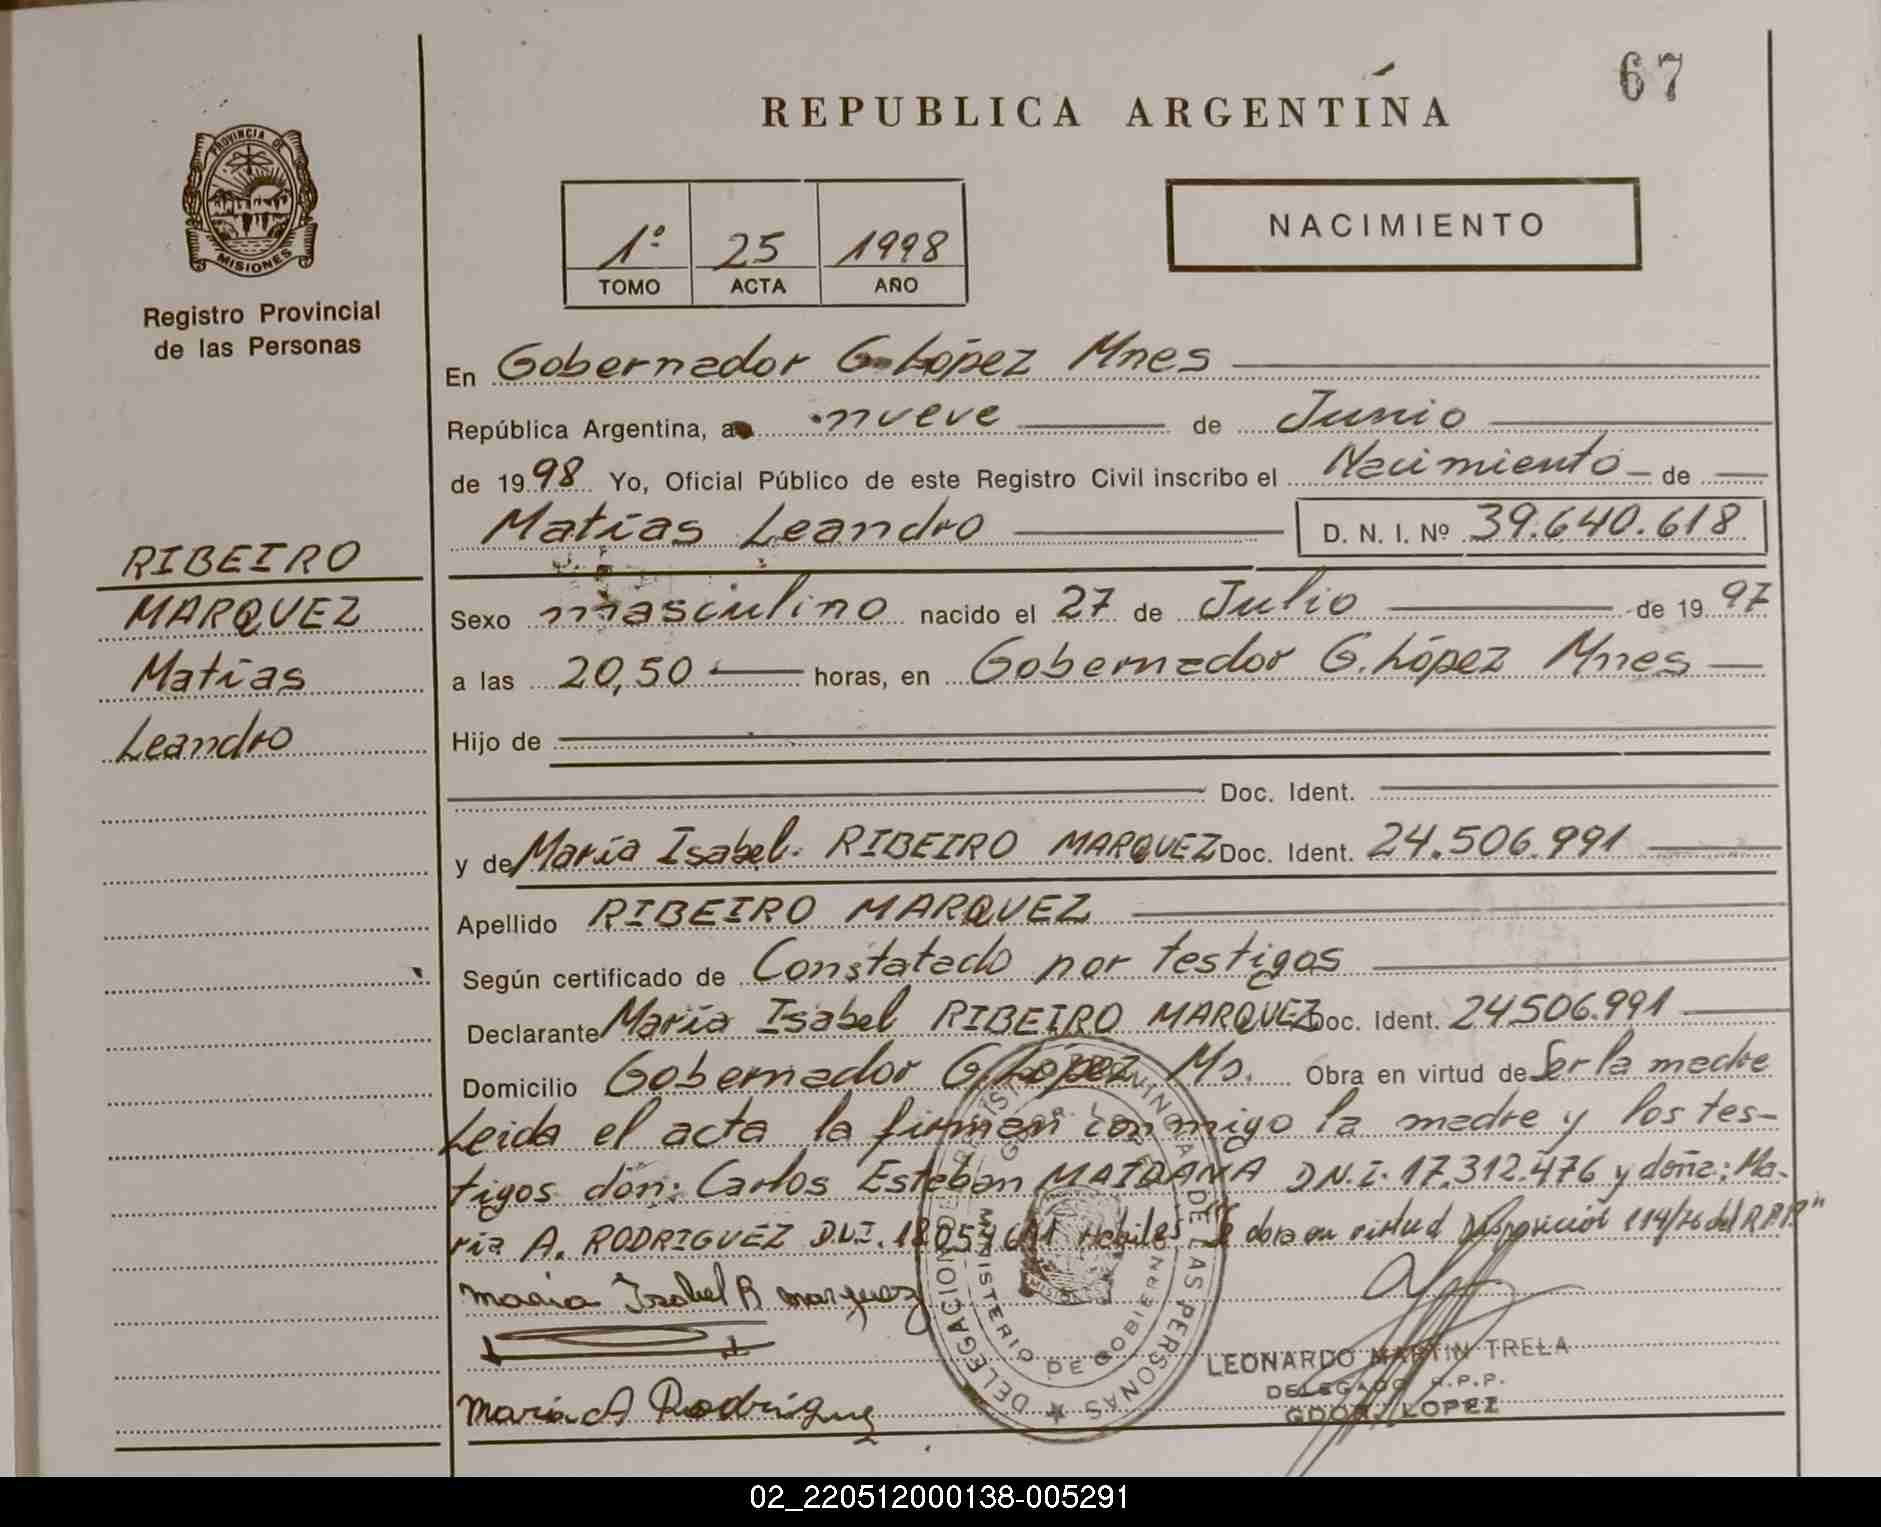 67
REPUBLICA ARGENTINA
PROVINCIA DE
MISIONES
Registro Provincial
de las Personas
1º 25 1998
TOMO ACTA AÑO
NACIMIENTO
En Gobernador G. López Mnes
República Argentina, a nueve de Junio
de 1998 Yo, Oficial Público de este Registro Civil inscribo el Nacimiento de
Matías Leandro D. N. I. Nº 39.640.618
RIBEIRO
MARQUEZ
Matías
Leandro
Sexo masculino nacido el 27 de Julio de 1997
a las 20,50 horas, en Gobernador G. López Mnes
Hijo de
Doc. Ident.
y de María Isabel. RIBEIRO MARQUEZ Doc. Ident. 24.506.991
Apellido RIBEIRO MARQUEZ
Según certificado de Constatado por testigos
Declarante María Isabel RIBEIRO MARQUEZ Doc. Ident. 24506.991
Domicilio Gobernador G. López Ms. Obra en virtud de Ser la madre
Leida el acta la firman conmigo la madre y los tes-
tigos don: Carlos Esteban MAIDANA D.N.I. 17.312.476 y doña: Ma-
ría A. RODRIGUEZ D.N.I. Habiles Se obra en virtud Disposición del R.P.P"
maria Isabel R marquez
María A Rodríguez
DELEGACION DE LAS PERSONAS
MINISTERIO DE GOBIERNO
LEONARDO MARTIN TRELA
DELEGADO R.P.P.
GDOR. LOPEZ
02_220512000138-005291